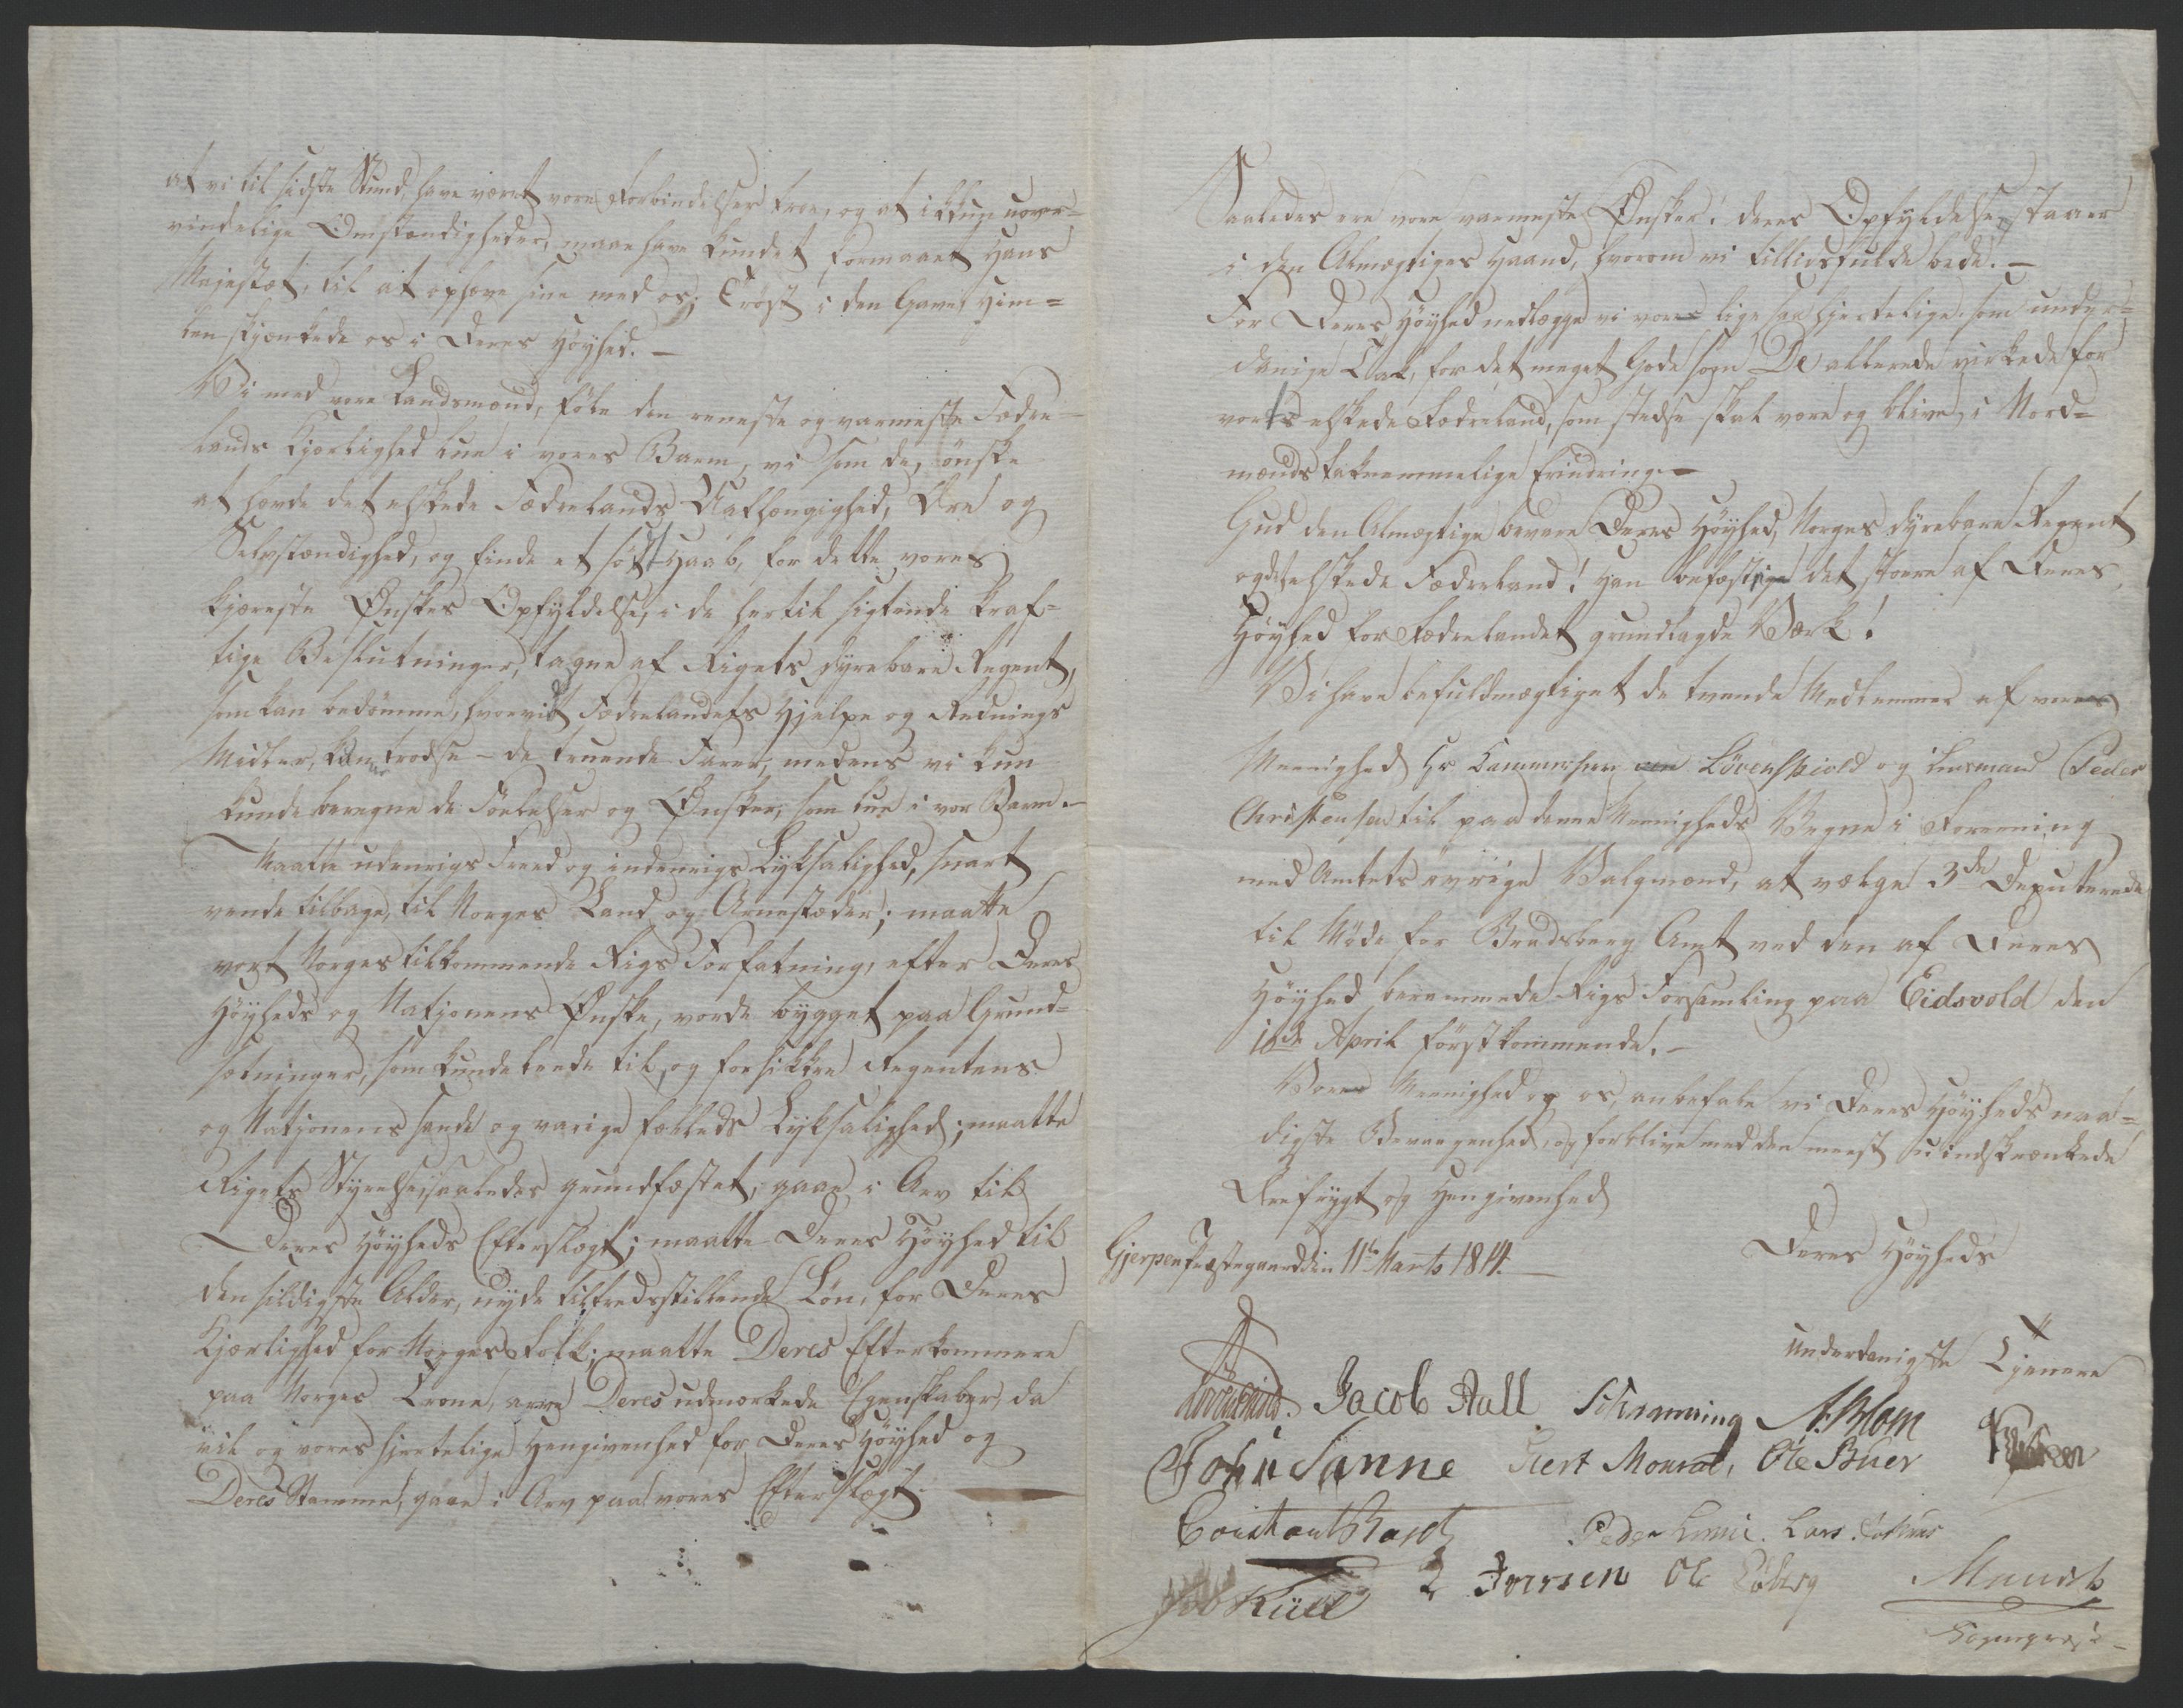 at vi til sidste Stund, have været vore Forbindelser troe, og at ikkun uover-
vindelige Omstændigheder, maae have kundet formaaet Hans
Majestæt, til at ophæve sine med os; Trøst i den Gave, Him-
len skjænkede os i Deres Høyhed. -
Vi med vore Landsmænd, føle den reneste og varmeste Fædre-
lands Kjærlighed lue i vores Barm, vi som de, ønske
at hævde det elskede Fædrelands Uafhængighed, Ære og
Selvstændighed, og finde et sødt Haab, for dette vores
kjæreste Ønskes Opfyldelse, i de hertil sigtende kraf-
tige Beslutninger, tagne af Rigets dyrebare Regent,
som kan bedømme, hvorvidt Fædrelandets Hjelpe og Rednings
Midler, kan trodse - de truende Farer, medens vi kun
kunde beregne de Følelser og Ønsker, som lue i vor Barm. -
Maatte udenrigs Freed og indenrigs Lyksalighed, snart
vende tilbage, til Norges Land og Arnestæder; maatte
vort Norges tilkommende Rigs Forfatning, efter Deres
Høyheds og Nationens Ønske, vorde bygget paa Grund-
sætninger, som kunde lede til, og forsikkre Regentens
og Nationens sande og varige fælleds Lyksalighed; maatte
Rigets Styrelse, saaledes grundfæstet, gaae i Arv til
Deres Høyheds Efterslægt; maatte Deres Høyhed til
den sildigste Alder, nyde tilfredsstillende Løn, for Deres
Kjærlighed for Norges Folk; maatte Deres Efterkommere
paa Norges Trone, arve Deres udmærkede Egenskaber, da
vil og vores hjertelige Hengivenhed for Deres Høyhed og
Deres Stamme, gaae i Arv paa vores Efterslægt.
Saaledes ere vore varmeste Ønsker! deres Opfyldelse staaer
i den Almægtiges Haand, hvorom vi tillidsfulde bede. -
For Deres Høyhed nedlægge vi vores lige saa hjertelige, som under-
danige Tak, for det meget Gode som De allerede virkede for
vort elskede Fædreland, som stedse skal være og blive, i Nord-
mænds taknemmelige Erindring. -
Gud den Almægtige bevare Deres Høyhed, Norges dyrebare Regent
og det elskede Fædreland! Han befæstige det store af Deres
Høyhed for Fædrelandet grundlagde Værk!
Vi have befuldmægtiget de tvende Medlemmer af vores
Meenighed Hr Kammerherr Løvenskiold og Lensmand Peder
Christensen til paa denne Meenigheds Vegne i Foreening
med Amtets øvrige Valgmænd, at vælge 3de Deputerede
til Møde for Bradsberg Amt ved den af Deres
Høyhed berammede Rigs Forsamling paa Eidsvold den
10de April førstkommende. -
Vores Meenighed og os, anbefale vi Deres Høyheds naa-
digste Bevaagenhed, og forblive med den meest uindskrænkede
Ærefrygt og Hengivenhed
Gjerpen Præstegaard den 11te Marts 1814. -
Deres Høyheds
underdanigste Tjenere
Løvenskiold. Jacob Aall Schramming A. Blom
John Sanne Giert Monrad, Ole Buer
Peder Lars
Ole
Munch
Sogneprest